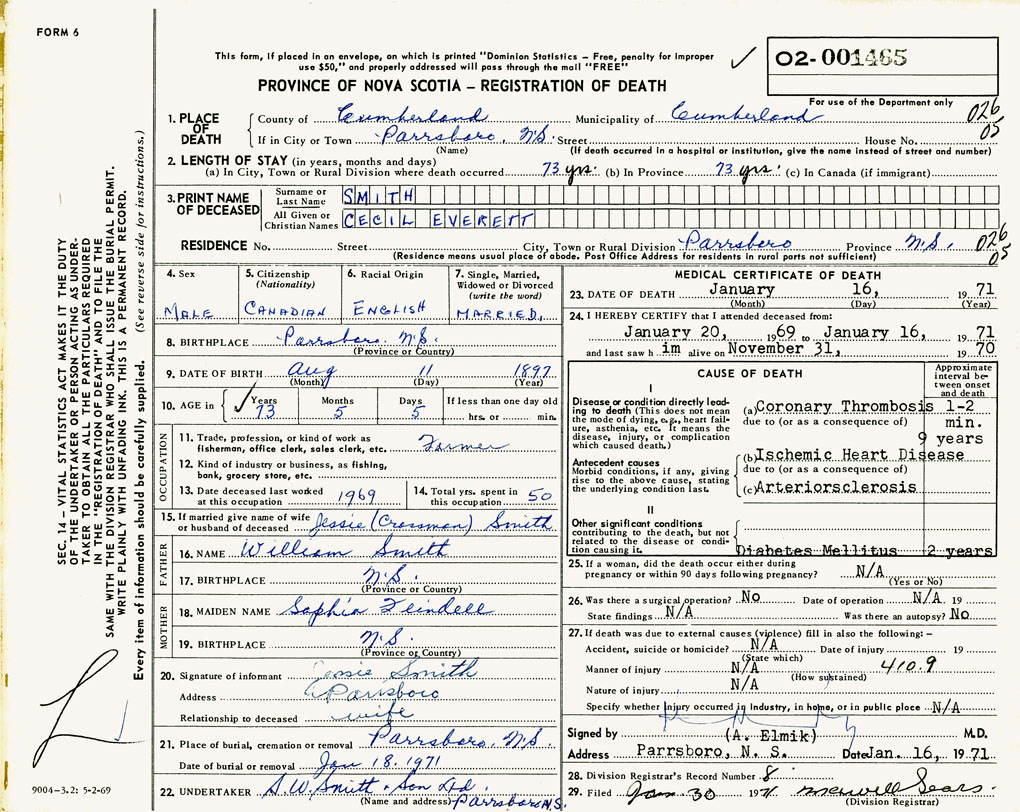 FORM 6
This form, if placed in an envelope, on which is printed "Dominion Statistics – Free, penalty for improper
use $50," and properly addressed will pass through the mail "FREE"
✓
02- 001465
PROVINCE OF NOVA SCOTIA – REGISTRATION OF DEATH
For use of the Department only
026
05
1. PLACE OF DEATH
County of Cumberland Municipality of Cumberland
If in City or Town Parrsboro, N.S. Street House No.
(Name) (If death occurred in a hospital or institution, give the name instead of street and number)
2. LENGTH OF STAY (in years, months and days)
(a) In City, Town or Rural Division where death occurred 73 yrs. (b) In Province 73 yrs. (c) In Canada (if immigrant)
3. PRINT NAME OF DECEASED
Surname or Last Name SMITH
All Given or Christian Names CECIL EVERETT
RESIDENCE No. Street City, Town or Rural Division Parrsboro Province N.S. 026
05
(Residence means usual place of abode. Post Office Address for residents in rural parts not sufficient)
4. Sex
MALE
5. Citizenship
(Nationality)
CANADIAN
6. Racial Origin
ENGLISH
7. Single, Married,
Widowed or Divorced
(write the word)
MARRIED,
8. BIRTHPLACE Parrsboro. N.S.
(Province or Country)
9. DATE OF BIRTH Aug 11 1897
(Month) (Day) (Year)
10. AGE in
✓ Years Months Days If less than one day old
73 5 5 hrs. or min.
OCCUPATION
11. Trade, profession, or kind of work as
fisherman, office clerk, sales clerk, etc. Farmer
12. Kind of industry or business, as fishing,
bank, grocery store, etc.
13. Date deceased last worked
at this occupation 1969
14. Total yrs. spent in
this occupation 50
15. If married give name of wife
or husband of deceased Jessie (Crossman) Smith
FATHER
16. NAME William Smith
17. BIRTHPLACE N.S.
(Province or Country)
MOTHER
18. MAIDEN NAME Sophia
19. BIRTHPLACE N.S.
(Province or Country)
20. Signature of informant Jessie Smith
Address Parrsboro
Relationship to deceased wife
21. Place of burial, cremation or removal Parrsboro, N.S.
Date of burial or removal Jan 18. 1971
22. UNDERTAKER S.W. Smith & Son Ltd.
(Name and address) Parrsboro N.S.
MEDICAL CERTIFICATE OF DEATH
23. DATE OF DEATH January 16, 19 71
(Month) (Day) (Year)
24. I HEREBY CERTIFY that I attended deceased from:
January 20, 1969 to January 16, 19 71
and last saw h im alive on November 31, 19 70
CAUSE OF DEATH
Approximate
interval be-
tween onset
and death
I
Disease or condition directly lead-
ing to death (This does not mean
the mode of dying, e.g., heart fail-
ure, asthenia, etc. It means the
disease, injury, or complication
which caused death.)
(a) Coronary Thrombosis 1-2
due to (or as a consequence of) min.
9 years
Antecedent causes
Morbid conditions, if any, giving
rise to the above cause, stating
the underlying condition last.
(b) Ischemic Heart Disease
due to (or as a consequence of)
(c) Arteriorsclerosis
II
Other significant conditions
contributing to the death, but not
related to the disease or condi-
tion causing it. Diabetes Mellitus 2 years
25. If a woman, did the death occur either during
pregnancy or within 90 days following pregnancy? N/A
(Yes or No)
26. Was there a surgical operation? No Date of operation N/A 19
State findings N/A Was there an autopsy? No
27. If death was due to external causes (violence) fill in also the following: –
Accident, suicide or homicide? N/A Date of injury 19
(State which)
Manner of injury N/A 410.9
(How sustained)
Nature of injury N/A
Specify whether injury occurred in industry, in home, or in public place N/A
Signed by (A. Elmik) M.D.
Address Parrsboro, N. S. Date Jan. 16, 19 71
28. Division Registrar's Record Number 8
29. Filed Jan 30 1971 Maxwell Sears
(Division Registrar)
SEC. 14 – VITAL STATISTICS ACT MAKES IT THE DUTY
OF THE UNDERTAKER OR PERSON ACTING AS UNDER-
TAKER TO OBTAIN ALL THE PARTICULARS REQUIRED
IN THE "REGISTRATION OF DEATH" AND TO FILE THE
SAME WITH THE DIVISION REGISTRAR WHO SHALL ISSUE THE BURIAL PERMIT.
WRITE PLAINLY WITH UNFADING INK. THIS IS A PERMANENT RECORD.
Every item of information should be carefully supplied. (See reverse side for instructions.)
9004-3.2: 5-2-69